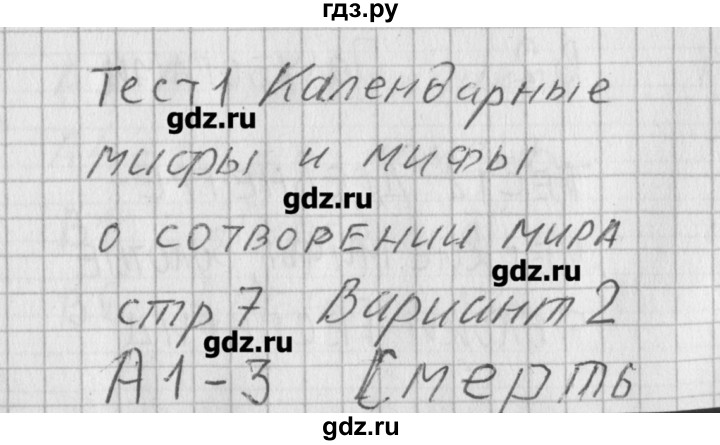 гдз.ру
Тест 1 Календарные
gdz.ru
мифы и мифы
gdz.ru
о сотворении мира
gdz.ru
стр 7 Вариант 2
gdz.ru
А1-3 Смерть
gdz.ru